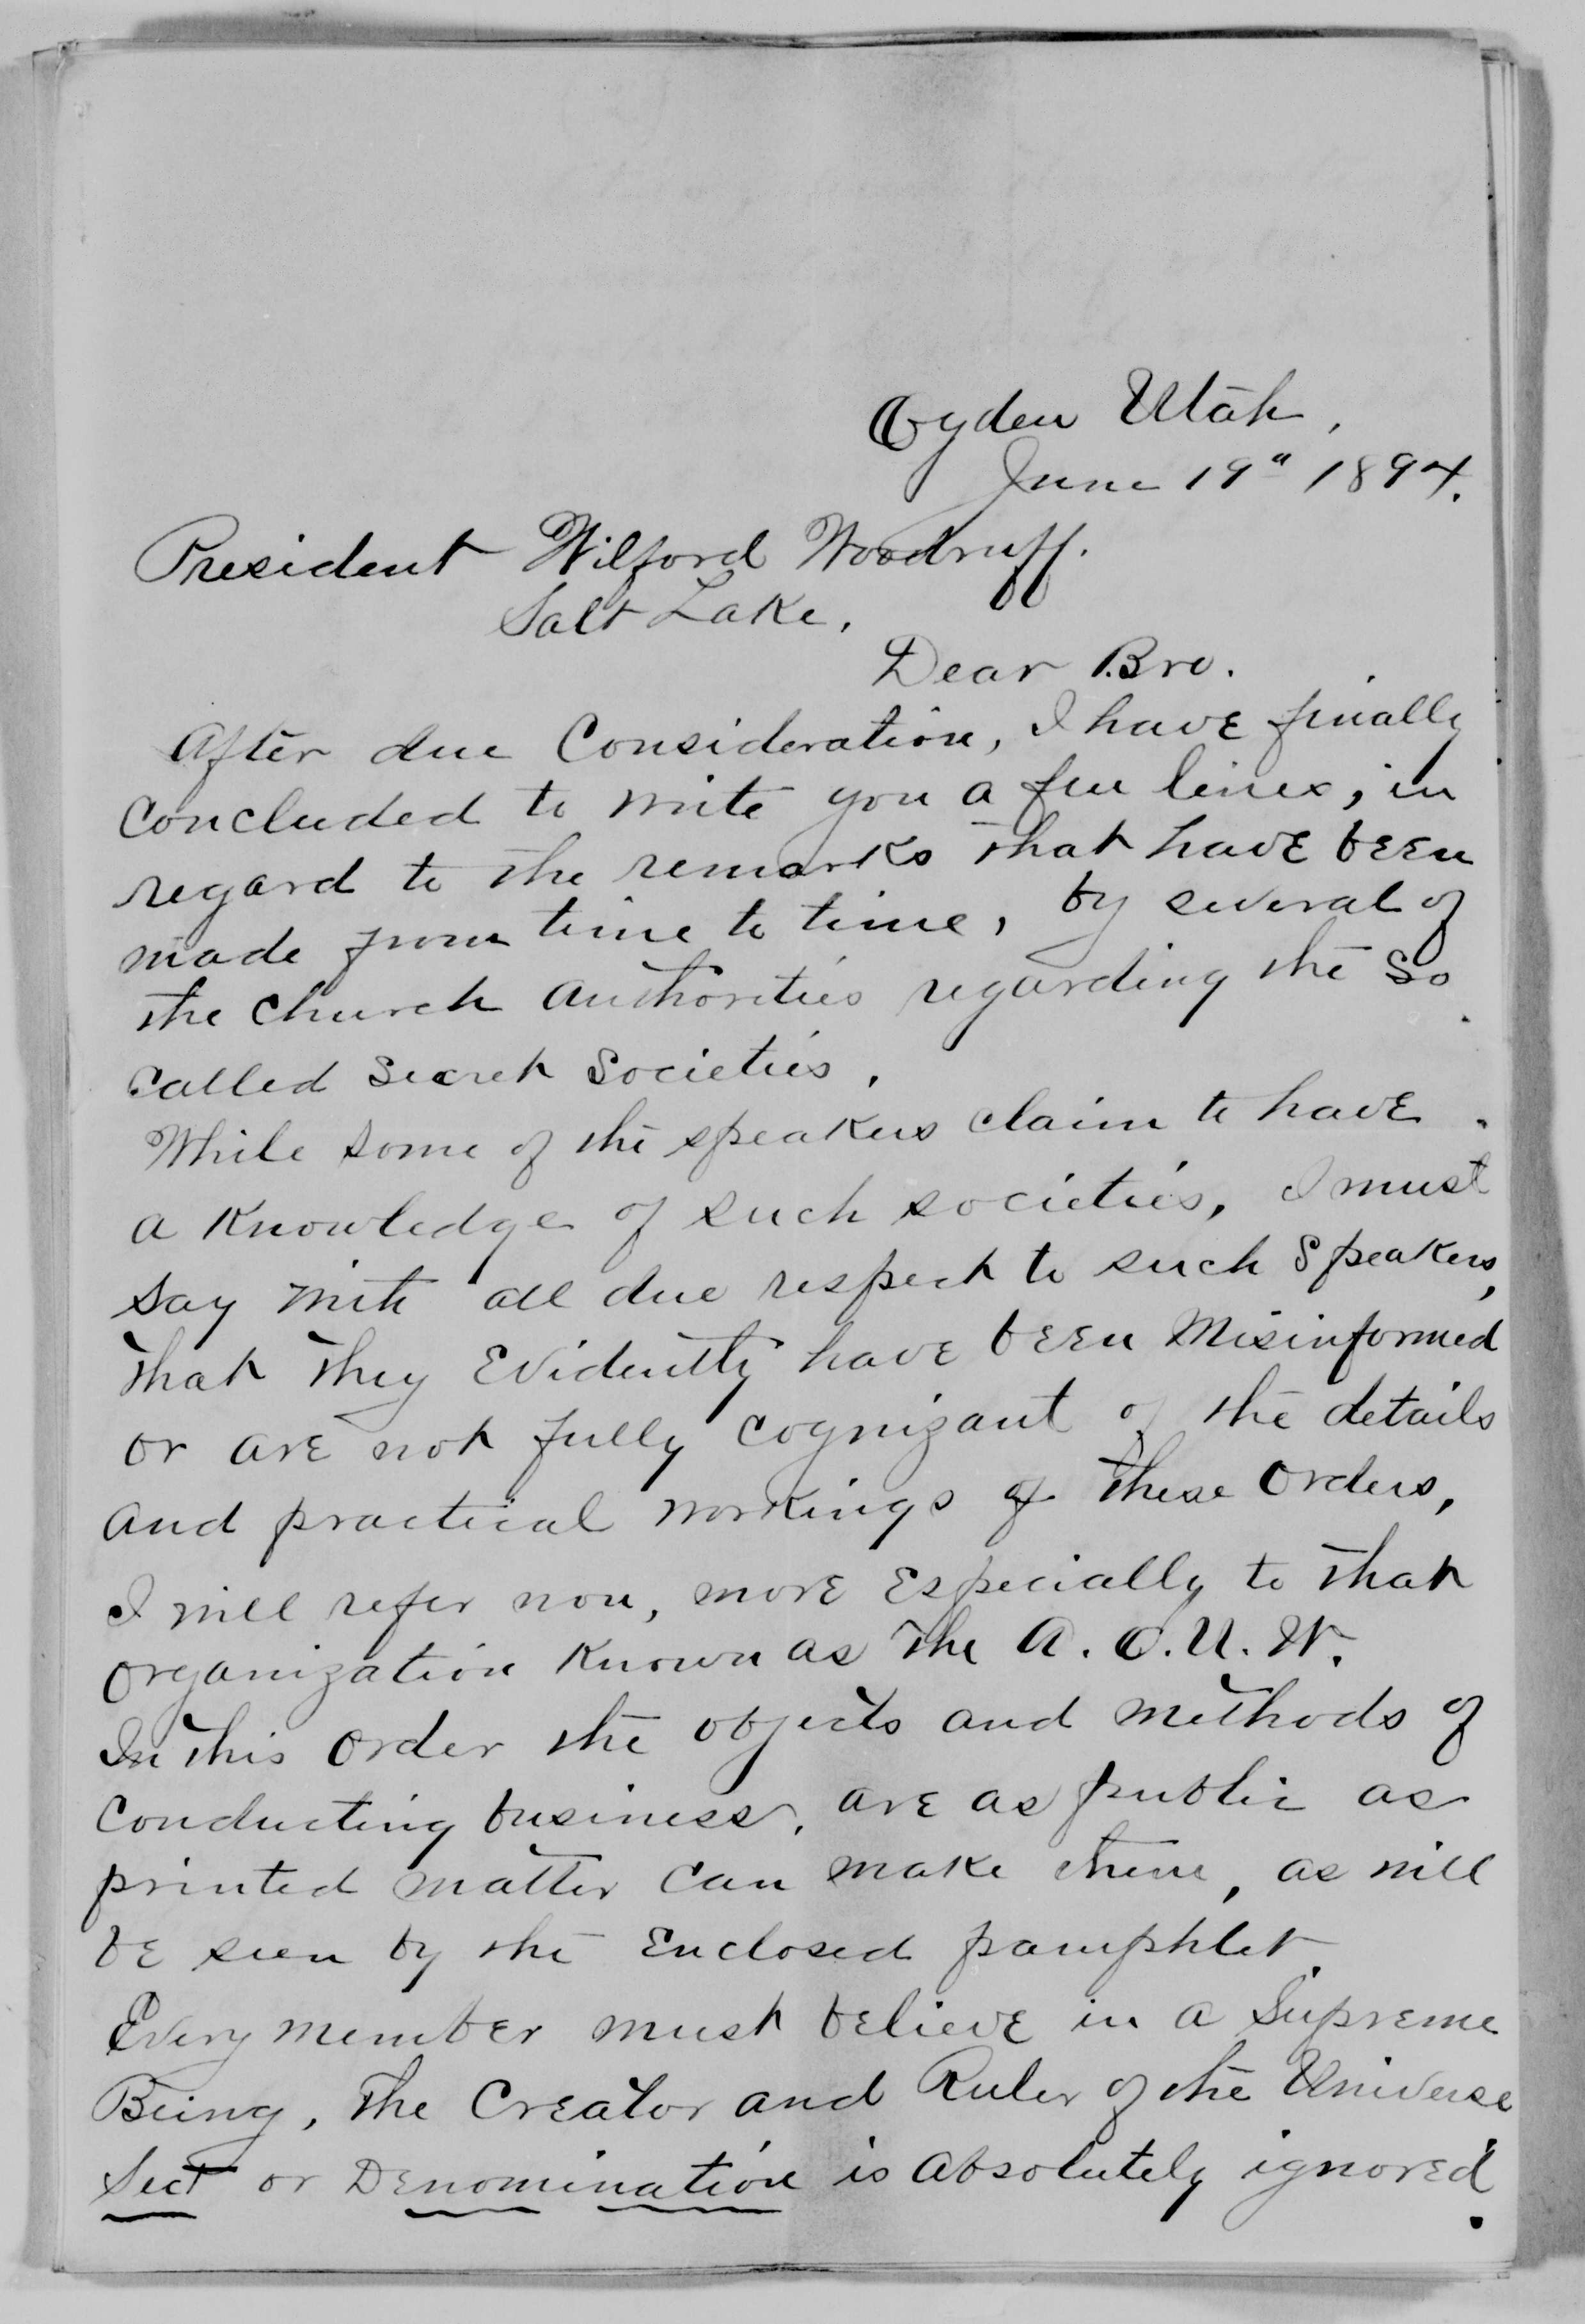 Ogden Utah,
June 19" 1894.
President Wilford Woodruff.
Salt Lake,
Dear Bro.
After due Consideration, I have finally
concluded to write you a few lines, in
regard to the remarks that have been
made from time to time, by several of
the Church Authorities regarding the so
called Secret Societies.
While some of the speakers claim to have
a knowledge of such societies, I must
say with all due respect to such Speakers,
that they Evidently have been Misinformed
or are not fully cognizant of the details
and practical workings of these Orders,
I will refer now, more Especially to that
organization known as the A. O. U. W.
In this Order the objects and methods of
Conducting business, are as public as
printed matter can make them, as will
be seen by the Enclosed pamphlet.
Every member must believe in a Supreme
Being, the Creator and Ruler of the Universe
Sect or Denomination is absolutely ignored.